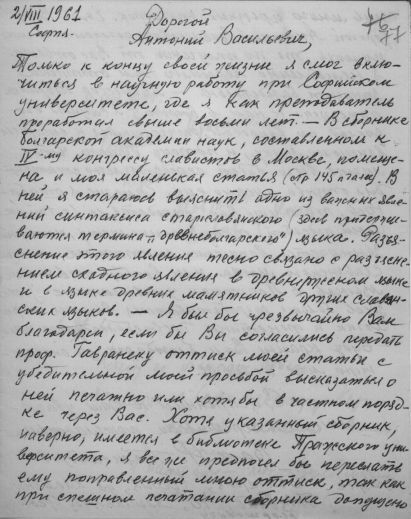 2/VIII 1961
София.
Дорогой
Антоний Васильевич,
Только к концу своей жизни я смог вклю-
читься в научную работу при Софийском
университете, где я как преподаватель
проработал свыше восьми лет. — В сборнике
болгарской академии наук, составленном к
IV-му конгрессу славистов в Москве, помеще-
на и моя маленькая статья (стр 145 и далее). В
ней я стараюсь выяснить одно из важных явле-
ний синтаксиса старославянского (здесь придержи-
ваются термина „древнеболгарского") языка. Разъя-
снение этого явления тесно связано с разъясне-
нием сходного явления в древнерусском языке
и в языке древних памятников других славян-
ских языков. — Я был бы чрезвычайно Вам
благодарен, если бы Вы согласились передать
проф. Гавранеку оттиск моей статьи с
убедительной моей просьбой высказаться о
ней печатно или хотя бы в частном поряд-
ке через Вас. Хотя указанный сборник,
наверно, имеется в библиотеке Пражского уни-
верситета, я все же предпочел бы переслать
ему поправленный мною оттиск, так как
при спешном печатании сборника допущено